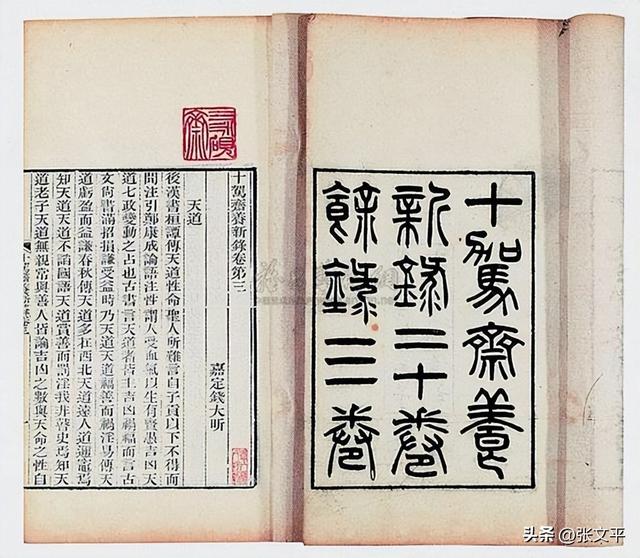 十駕齋養
新録二十卷
餘録三卷
十駕齋養新錄卷第三
嘉定錢大昕
天道
後漢書桓譚傳天道性命聖人所難言自子貢以下不得而
聞注引鄭康成論語注性謂人受血氣以生有賢愚吉凶天
道七政變動之占也古書言天道者皆主吉凶禍福而言古
文尚書滿招損謙受益時乃天道天道福善而禍淫易傳天
道虧盈而益謙春秋傳天道多在西北天道遠人道邇竈焉
知天道天道不謟國語天道賞善而罰淫我非瞽史焉知天
道老子天道無親常與善人皆論吉凶之數與天命之性自
头条 @张文平